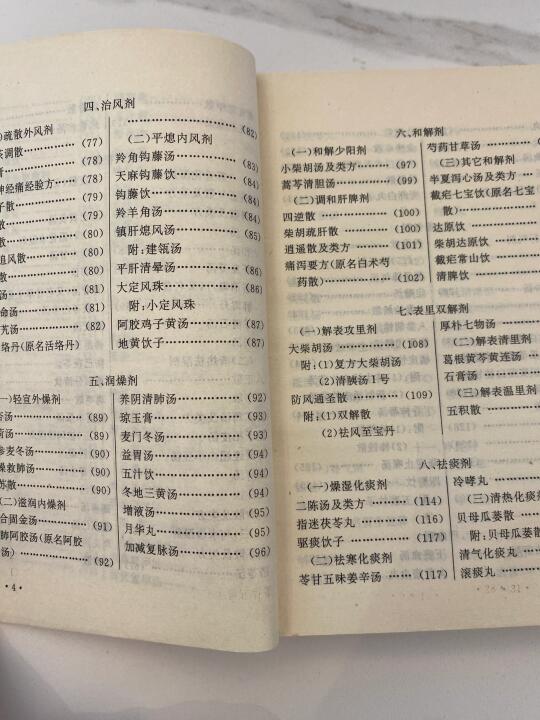 四、治风剂
)疏散外风剂
茶调散 (77)
(78)
神经痛经验方 (78)
子散 (79)
散 (79)
散 (79)
追风散 (80)
散 (80)
汤 (81)
命汤 (81)
艽汤 (82)
络丹(原名活络丹)
(82)
(二)平熄内风剂
羚角钩藤汤 (83)
天麻钩藤饮 (84)
钩藤饮 (84)
羚羊角汤 (84)
镇肝熄风汤 (85)
附:建瓴汤
平肝清晕汤 (86)
大定风珠 (86)
附:小定风珠
阿胶鸡子黄汤 (87)
地黄饮子 (87)
五、润燥剂
一)轻宣外燥剂
苏汤 (89)
汤 (89)
参麦冬汤 (90)
燥救肺汤 (90)
苏散 (90)
(二)滋润内燥剂
合固金汤 (91)
肺阿胶汤(原名阿胶
汤) (92)
养阴清肺汤 (92)
琼玉膏 (93)
麦门冬汤 (93)
益胃汤 (94)
五汁饮 (94)
冬地三黄汤 (94)
增液汤 (95)
月华丸 (95)
加减复脉汤 (96)
·4·
六、和解剂
(一)和解少阳剂
小柴胡汤及类方 (97)
蒿芩清胆汤 (99)
(二)调和肝脾剂
四逆散 (100)
柴胡疏肝散 (100)
逍遥散及类方 (101)
痛泻要方(原名白术芍
药散) (102)
芍药甘草汤
(三)其它和解剂
半夏泻心汤及类方
截疟七宝饮(原名七宝
散)
达原饮
柴胡达原饮
截疟常山饮
清脾饮
七、表里双解剂
(一)解表攻里剂
大柴胡汤 (108)
附:(1)复方大柴胡汤
(2)清胰汤1号
防风通圣散 (109)
附:(1)双解散
(2)祛风至宝丹
厚朴七物汤
(二)解表清里剂
葛根黄芩黄连汤
石膏汤
(三)解表温里剂
五积散
八、祛痰剂
(一)燥湿化痰剂
二陈汤及类方 (114)
指迷茯苓丸 (116)
驱痰饮子 (117)
(二)祛寒化痰剂
苓甘五味姜辛汤 (117)
冷哮丸
(三)清热化痰剂
贝母瓜蒌散
附:贝母瓜蒌
清气化痰丸
滚痰丸